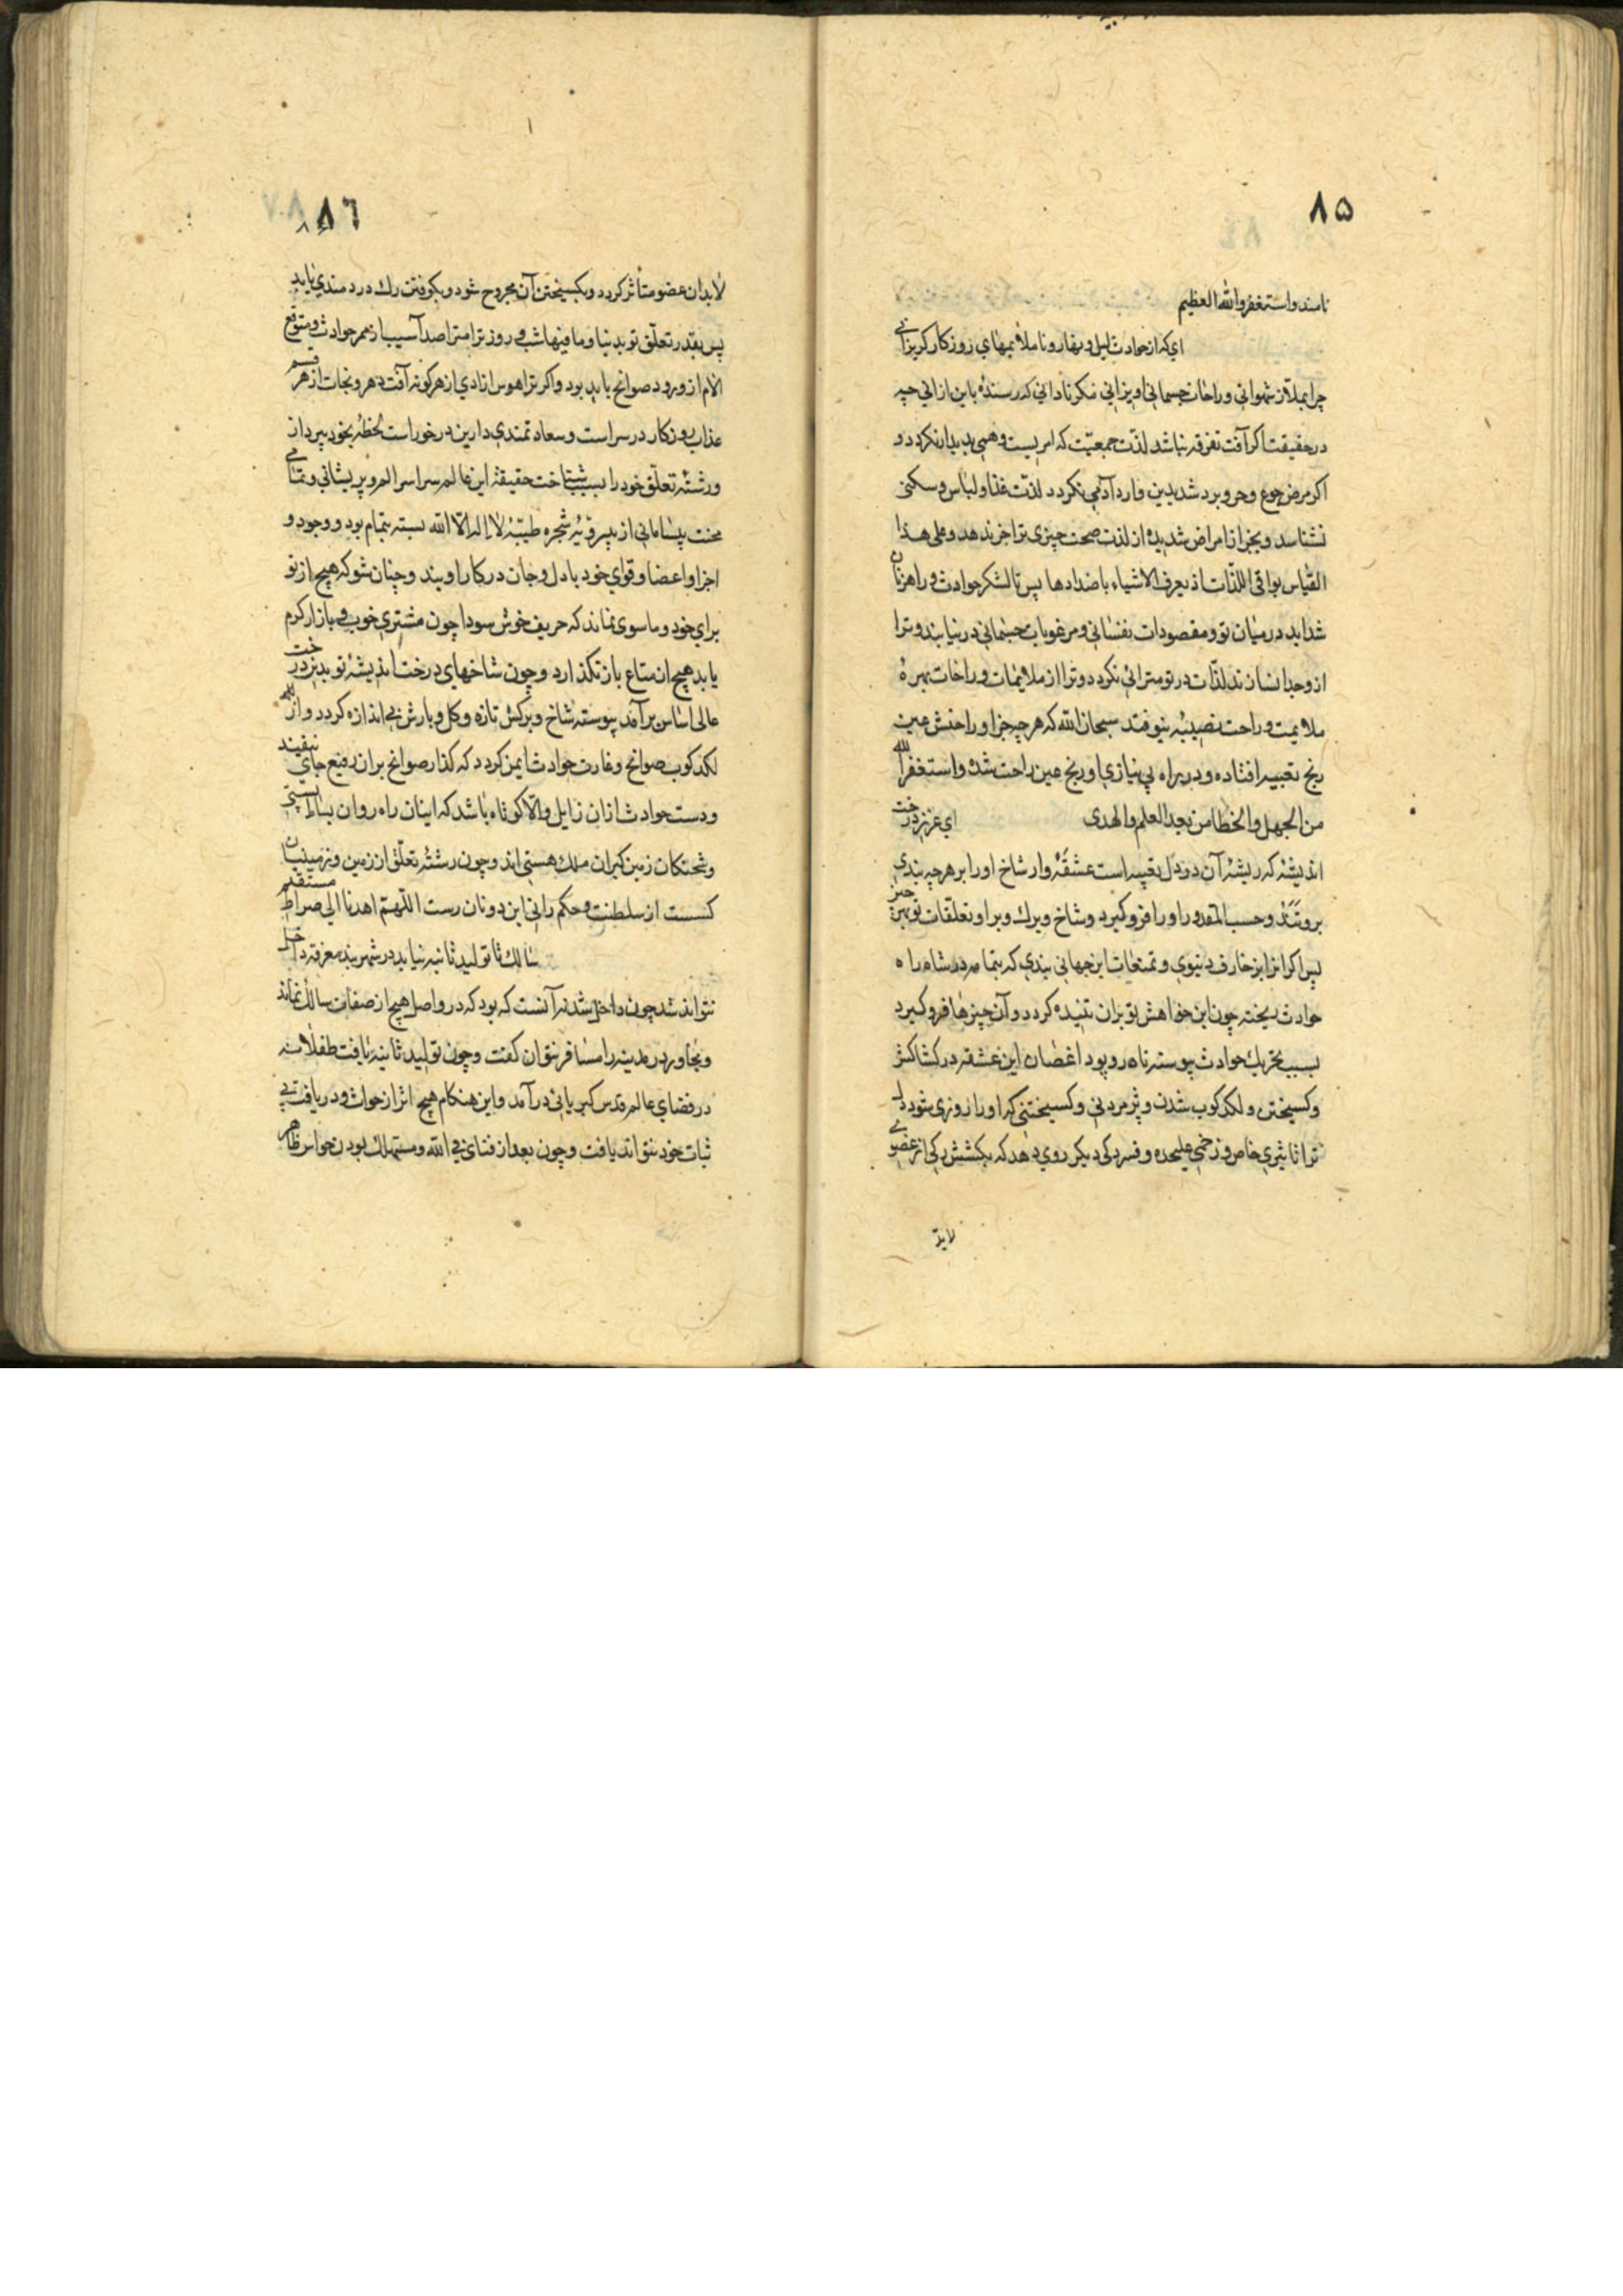 ۸۵
نامند واستغفروا الله العظیم
ای که از حوادث لیل ونهار وناملایمهای روزکار کریزانی
چرا بملاذ شهوانی وراحات جسمانی اویزانی مکر نادانی که رسنده باین ازانی چه
در حقیقت اکر آفت تفرقه نباشد لذّت جمعیّت که امریست وهمی پدیدار نکردد و
اکر مرض جوع وحر وبرد شدیدین وارد آدمی نکردد لذّت غذا ولباس وسکنی
نشناسد وبجز از امراض شدیده از لذت صحت چیزی ترا خبر ندهد وعلی هذا
القیاس بواقی اللذّات اذ یعرف الاشیاء باضدادها پس تا لشکر حوادث وراهزنان
شداید در میان تو ومقصودات نفسانی ومرغوبات جسمانی در نیایند وترا
از وجدانسازند لذّات در تو مترائی نکردد وترا از ملایمات وراحات بهرهٔ
ملایمت وراحت نصیبیه نیوفتد سبحان الله که هر چیز جزا وراحتش عین
رنج تعبیه افتاده ودر راه بی نیازی او رنج عین راحت شده واستغفر الله
من الجهل والخطا من بعد العلم والهدی ای عزیز درخت
اندیشهٔ که ریشهٔ آن در دل تعبیه است عشقهٔ وار شاخ اورا بر هر چه بندی
بروتند وحسب المقدور اورا فرو کیرد وشاخ وبرك وبر او تعلّقات تو بهر چیز
پس اکر انرا بزخارف دنیوی وتمتعات این جهانی بندی که بتمامه در شاه راه
حوادث ریخته چون این خواهش تو بران تنیده کردد وآن چیزها فرو کیرد
بسبب تحریك حوادث پیوسته تاه رو پود اغصان این عشقه در کشاکش
وکسیختن ولکد کوب شدن وپژمردنی وکسیختنی که اورا روزی شود دل
ترا تاثیری خاص وزخمی علیحده وفسردکی دیکر روی دهد که بکشش رکی از عضوی
لابدّ
۸٦
لابد ان عضو متأثر کردد وبکسیختن آن مجروح شود وبکوفتن رك دردمندی یابد
پس بقدر تعلّق تو بدنیا وما فیها شب وروز ترا مترا صد آسیب از ممر حوادث ومتوقع
الام از ورود صوانح باید بود واکر ترا هوس ازادی از هر کونه آفت دهر ونجات از هر قسم
عذاب روزکار در سر است وسعادتمندی دارین در خور است لحظهٔ بخود پرداز
ورشتهٔ تعلّق خود را بسبب شناخت حقیقهٔ این عالم سراسر الم وپریشانی وتمامی
محنت بیسامانی از پیرویه شجره طیّبهٔ لا اله الا الله بسته بتمام بود ووجود و
اجزا واعضا وقوای خود با دل وجان در کار او بند وچنان شو که هیچ از تو
برای خود وما سوی نماند که حریف خوش سودا چون مشتری خوب وبازار کرم
یابد هیچ از متاع باز نکذارد وچون شاخهای درخت اندیشهٔ تو بدین درخت
عالی اساس برآمد پیوسته شاخ وبرکش تازه وکل وبارش بی اندازه کردد واز
لکد کوب صوانح وغارت حوادث ایمن کردد که کذار صوانح بران رفیع جای نیفتند
ودست حوادث ازان زایل والا کوتاه باشد که اینان راه روان بساط پستی
وشحنکان زمین کیران ملك هستی اند وچون رشتهٔ تعلّق از زمین وزمینیان
کسست از سلطنت وحکم رانی این دونان رست اللّهمّ اهدنا الی صراط مستقیم
سالك تا تولید ثانیه نیابد در شهربند معرفة داخل
نتواند شد چون داخل شدنه آنست که بود که در واصل هیچ از صفات سالك نماند
ومجاور در مدینه را مسافر نتوان کفت وچون تولید ثانیه یافت طفلانه
در فضای عالم قدس کبریائی در آمد واین هنکام هیچ اثر از حواث ودر یافت بی
ثبات خود نتواند یافت وچون بعد از فنای فی الله ومستهلك بودن حواس ظاهر